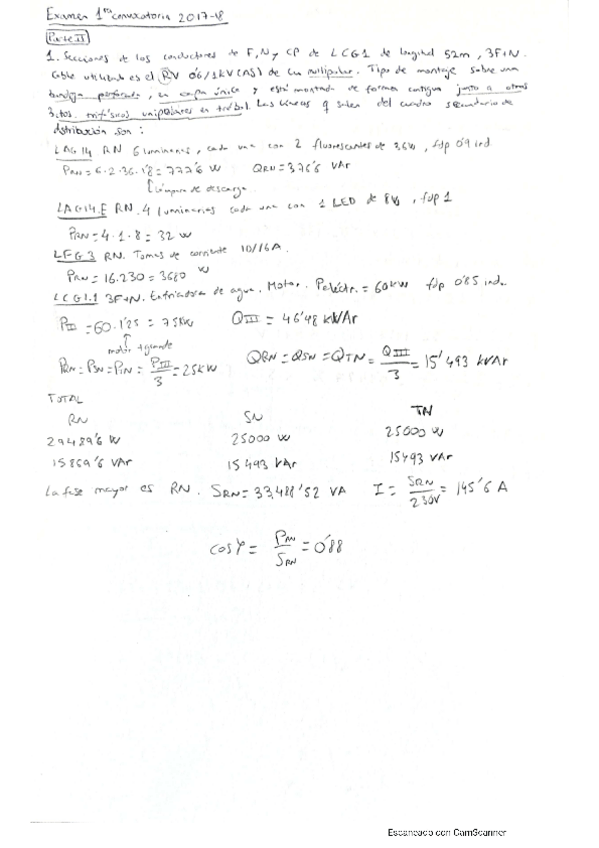 Examen 1ra convocatoria 2017-18
Parte II
1. Secciones de los conductores de F, N y CP de LCG1 de longitud 52m, 3F+N.
Cable utilizado es el RV 0'6/1KV (AS) de Cu multipolar. Tipo de montaje sobre una
bandeja perforada, en capa única y está montado de forma contigua junto a otros
3 ctos. trifásicos unipolares en trébol. Las líneas q salen del cuadro secundario de
distribución son:
LAG14 RN 6 luminarias, cada una con 2 fluorescentes de 36W, fdp 0'9 ind.
PRN = 6·2·36·1'8 = 777'6 W QRN = 376'6 VAr
Lámpara de descarga
LAG14.E RN. 4 luminarias cada una con 1 LED de 8W, fdp 1
PRN = 4·1·8 = 32 W
LFG3 RN. Tomas de corriente 10/16A.
PRN = 16·230 = 3680 W
LCG1.1 3F+N. Enfriadora de agua. Motor. Peléctr. = 60kW fdp 0'85 ind.
PIII = 60·1'25 = 75kW QIII = 46'48 kVAr
motor + grande
PRN = PSN = PTN = PIII/3 = 25kW QRN = QSN = QTN = QIII/3 = 15'493 kVAr
TOTAL
RN SN TN
29489'6 W 25000 W 25000 W
15869'6 VAr 15493 VAr 15493 VAr
La fase mayor es RN. SRN = 33.488'52 VA I = SRN/230V = 145'6 A
cosφ = PRN/SRN = 0'88
Escaneado con CamScanner